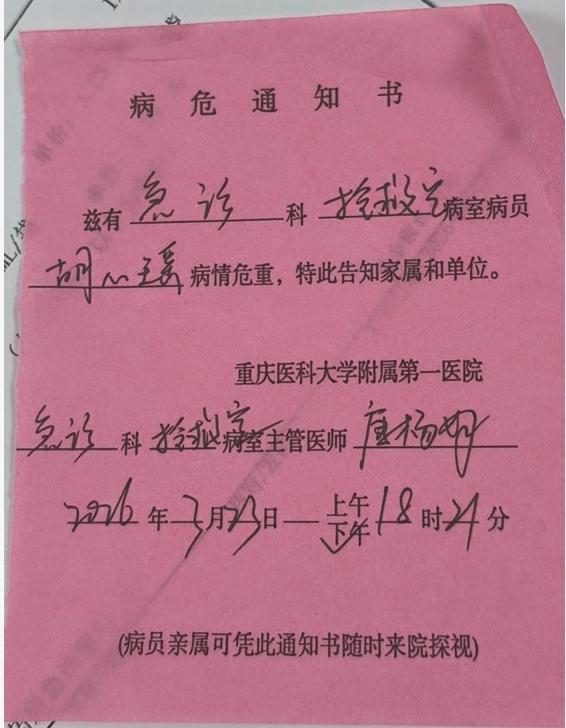 病危通知书
兹有 急诊 科 抢救室 病室病员
胡心瑶 病情危重，特此告知家属和单位。
重庆医科大学附属第一医院
急诊 科 抢救室 病室主管医师
2026 年 3 月 23 日 上午
下午 18 时 21 分
(病员亲属可凭此通知书随时来院探视)